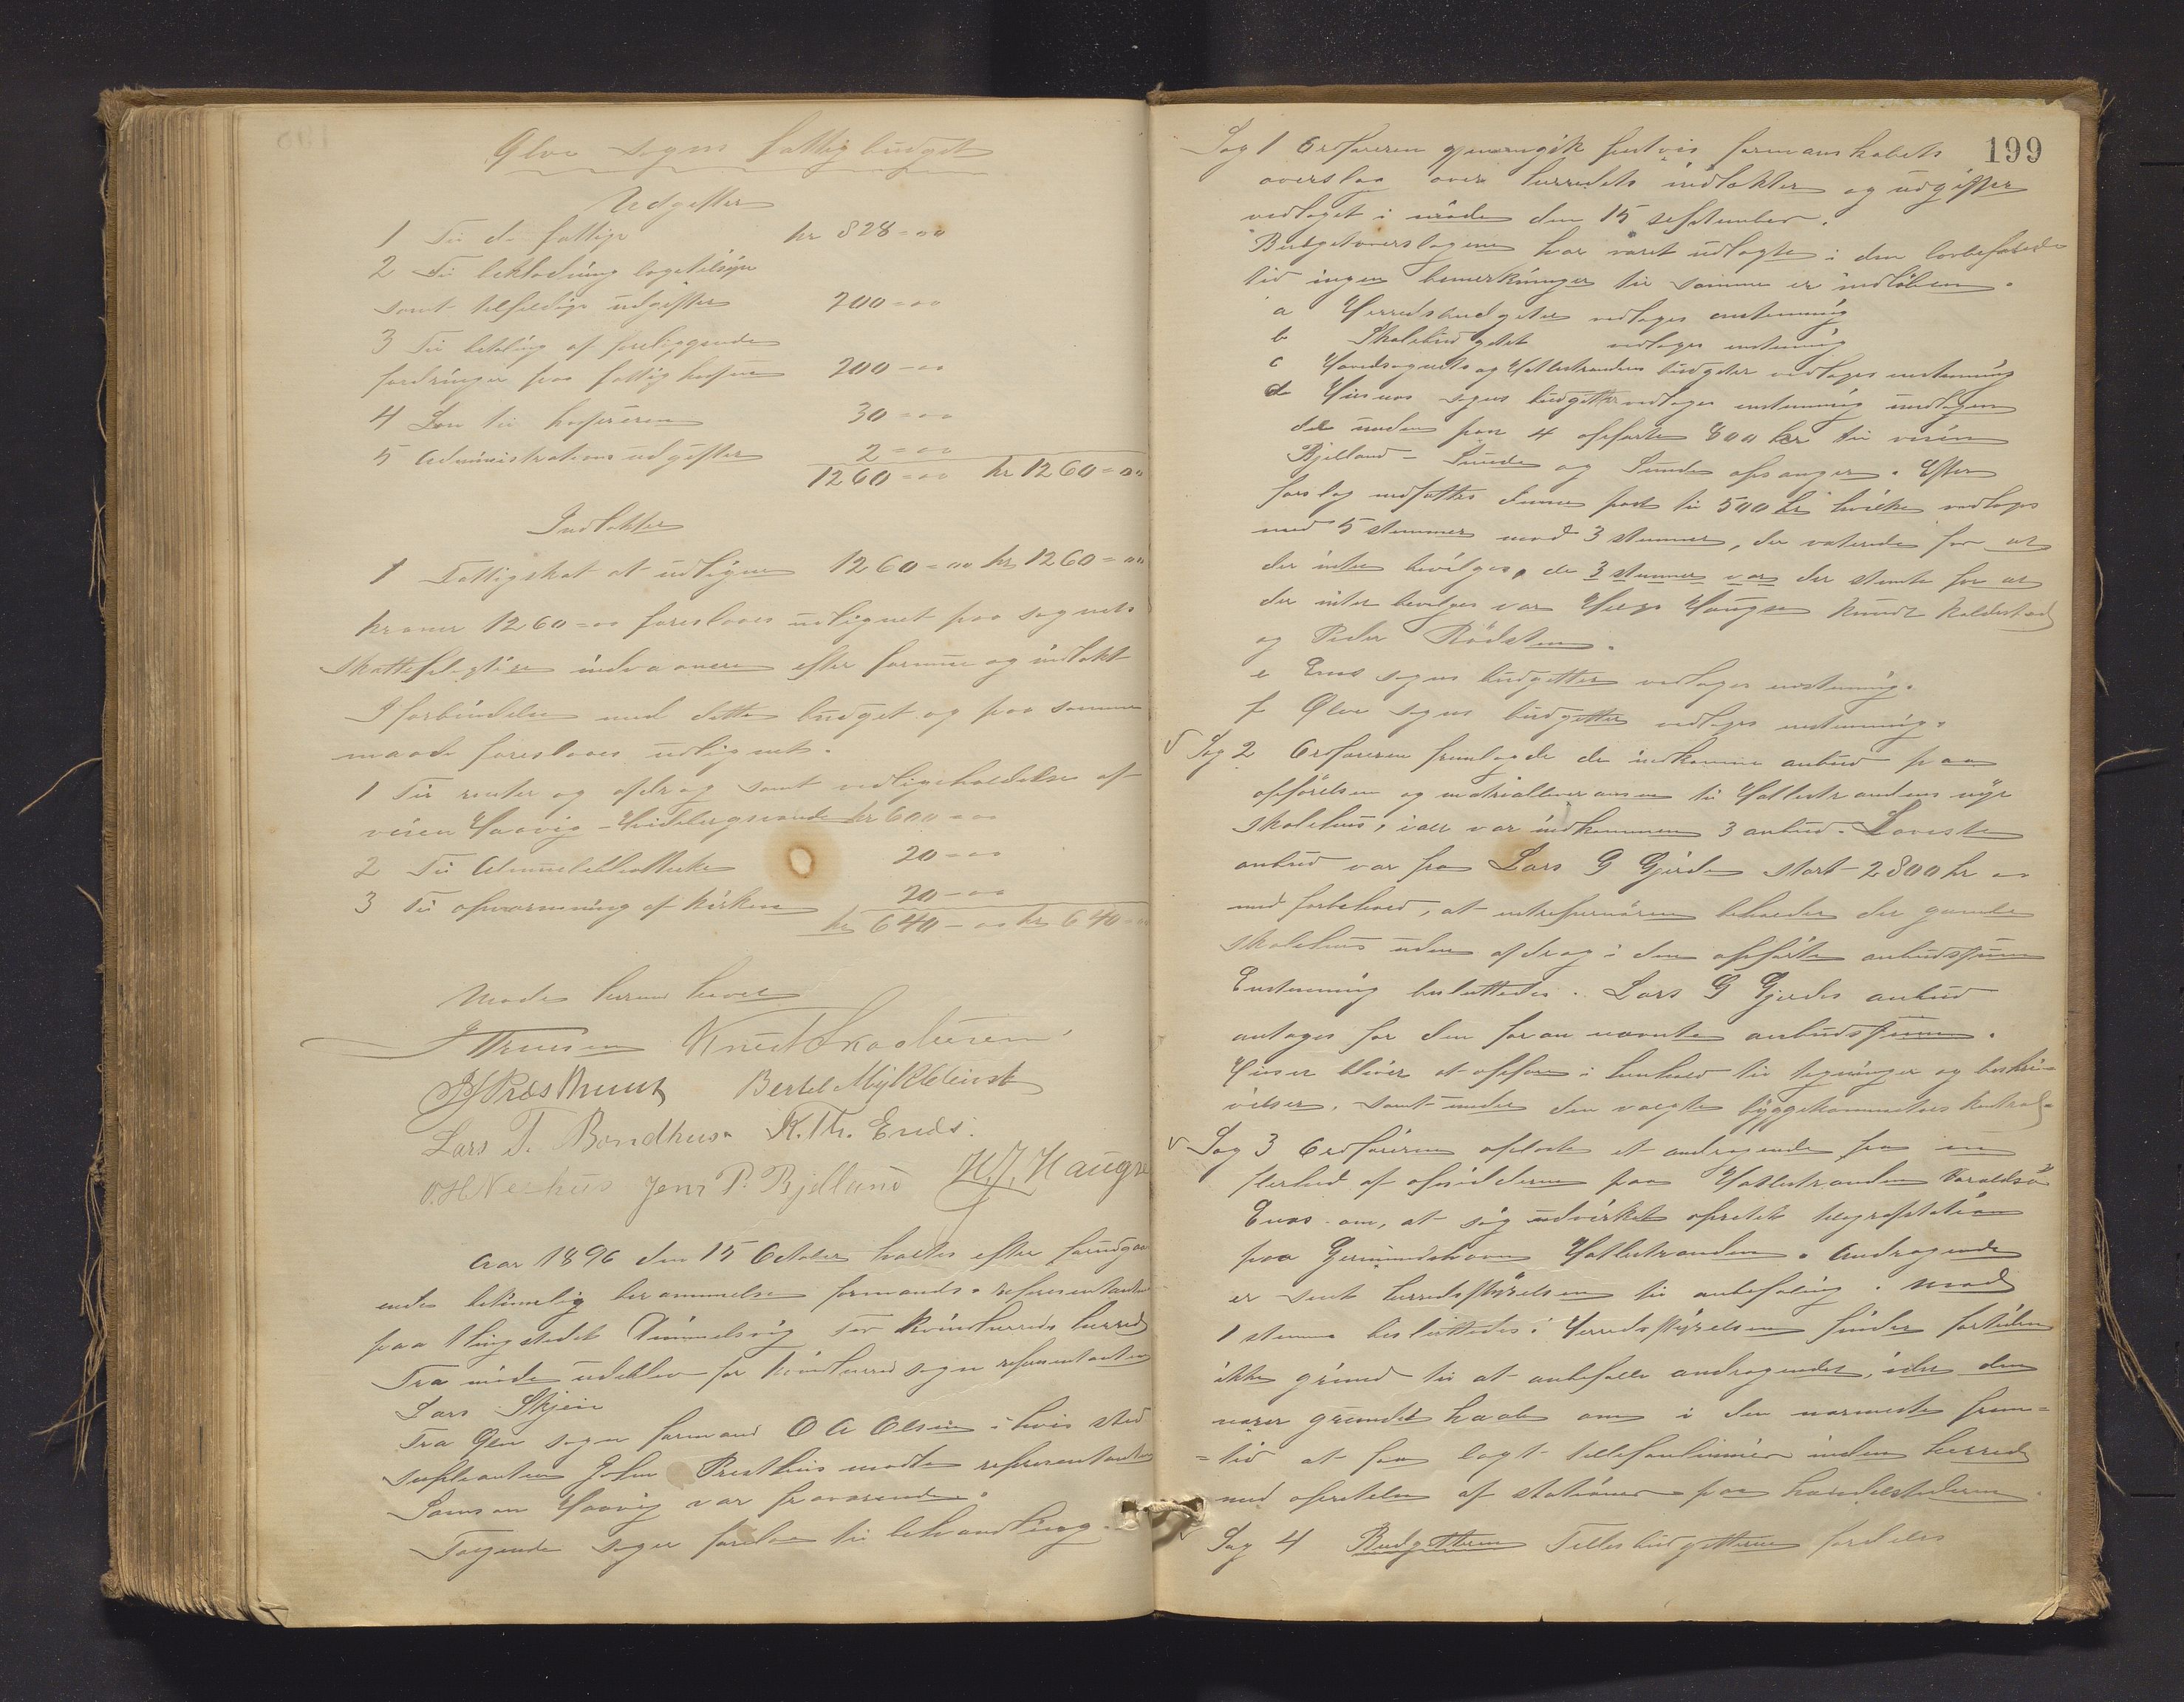 Ølve sogns fattigbudget
Udgifter
1 Til de fattige kr 828=00
2 Til beklædning lægetilsyn
samt tilfeldige udgifter 200=00
3 Til betaling af foreliggende
fordringer paa fattigkassen 200-00
4 Løn til kassereren 30=00
5 Administrations udgifter 2=00
1260=00 kr 1260=00
Indtækter
1 Fattigskat at udligne 1260=00 kr 1260=00
kroner 1260=00 foreslaaes udlignet paa sognets
skattepligtige indvaanere efter formue og indtækt
I forbindelse med dette budget og paa samme
maade foreslaaes udlignet.
1 Til renter og afdrag samt vedligeholdelse af
veien Haavig - kr 600=00
2 Til Almuebibliotheket 20=00
3 Til opvarmning af kirken 20-00
kr 640-00 kr 640-00
Mødet hermed hævet
Knud Skaaluren
Bertel Myklebust
Lars T. Bondhus K. Th. Enes.
O. H. Nerhus Jens P. Bjelland H. J. Haugse
Aar 1896 den 15 October holtes efter forudgaa
ende betimelig berammelse formands- representantm
paa thingstedet Dimmelsvig for Kvindherreds herred
Fra møde udeblev for Kvindherred sogn representanten
Lars Skjeie
Fra Ølve sogn formand O A Olsen i hvis sted
suppleanten John Presthus mødte representanten
Samson Haavig var fraværende.
Følgende sager forelaa til behandling.
199
Sag 1 Ordføreren gjennemgik postvis formanskabets
overslag over herredets indtækter og udgifter
vedtaget i møde den 15 september.
Budgetoverslagene har været udlagte i den lovbefalede
tid ingen bemerkninger til samme er indløben.
a Herredsbudgetet vedtages enstemmig
b Skolebudgetet vedtages enstemmig
c Hovedsognets og Hatlestrandens budgeter vedtages enstemmig
d Husnes sogns budgetter vedtages enstemmig undtagen
det under post 4 opførte 800 kr til veien
Bjelland - Sunde og Sunde opsanger. Efter
forslag nedsattes denne post til 500 kr hvilke vedtoges
med 5 stemmer mod 3 stemmer, der voterede for at
der intet bevilges, de 3 stemmer var der stemte for at
der intet bevilges var Helge Haugse Knud Koldestad
og Peder Rødsten.
e Enes sogns budgetter vedtages enstemmig.
f Ølve sogns budgetter vedtages enstemmig.
Sag 2 Ordføreren fremlagde de indkomne anbud paa
opførelsen og materialleveransen til Hatlestrandens nye
skolehus, i alt var indkommen 3 anbud. Laveste
anbud var fra Lars G Gjerde stort - 2800 kr 00
med forbehold, at entreprenøren beholder det gamle
skolehus uden afdrag i den opførte anbudssum
Enstemmig besluttedes. Lars G Gjerdes anbud
antages for den foran nævnte anbudssum.
Huset bliver at opføre i henhold til tegninger og beskri=
velser, samt under den valgte byggekommites kontrol.
Sag 3 Ordføreren oplæste et andragende fra en
flerhed af opsidderne paa Hatlestranden Varaldsø
Enes om, at søg udvirket oprettet telegrafstation
paa Gjermundshavn Hatlestranden. Andragende
er sent herredsstyrelsen til anbefaling. Mod
1 stemme besluttedes: Herredsstyrelsen finder fortiden
ikke grund til at anbefale andragendet, idet den
nærer grundet haab om i den nærmeste frem=
=tid at faa lagt tellefonlinnier inden herred
med oprettelse af stationer paa handelstederne.
Sag 4 Budgetterne Fellesbudgetterne fordeles